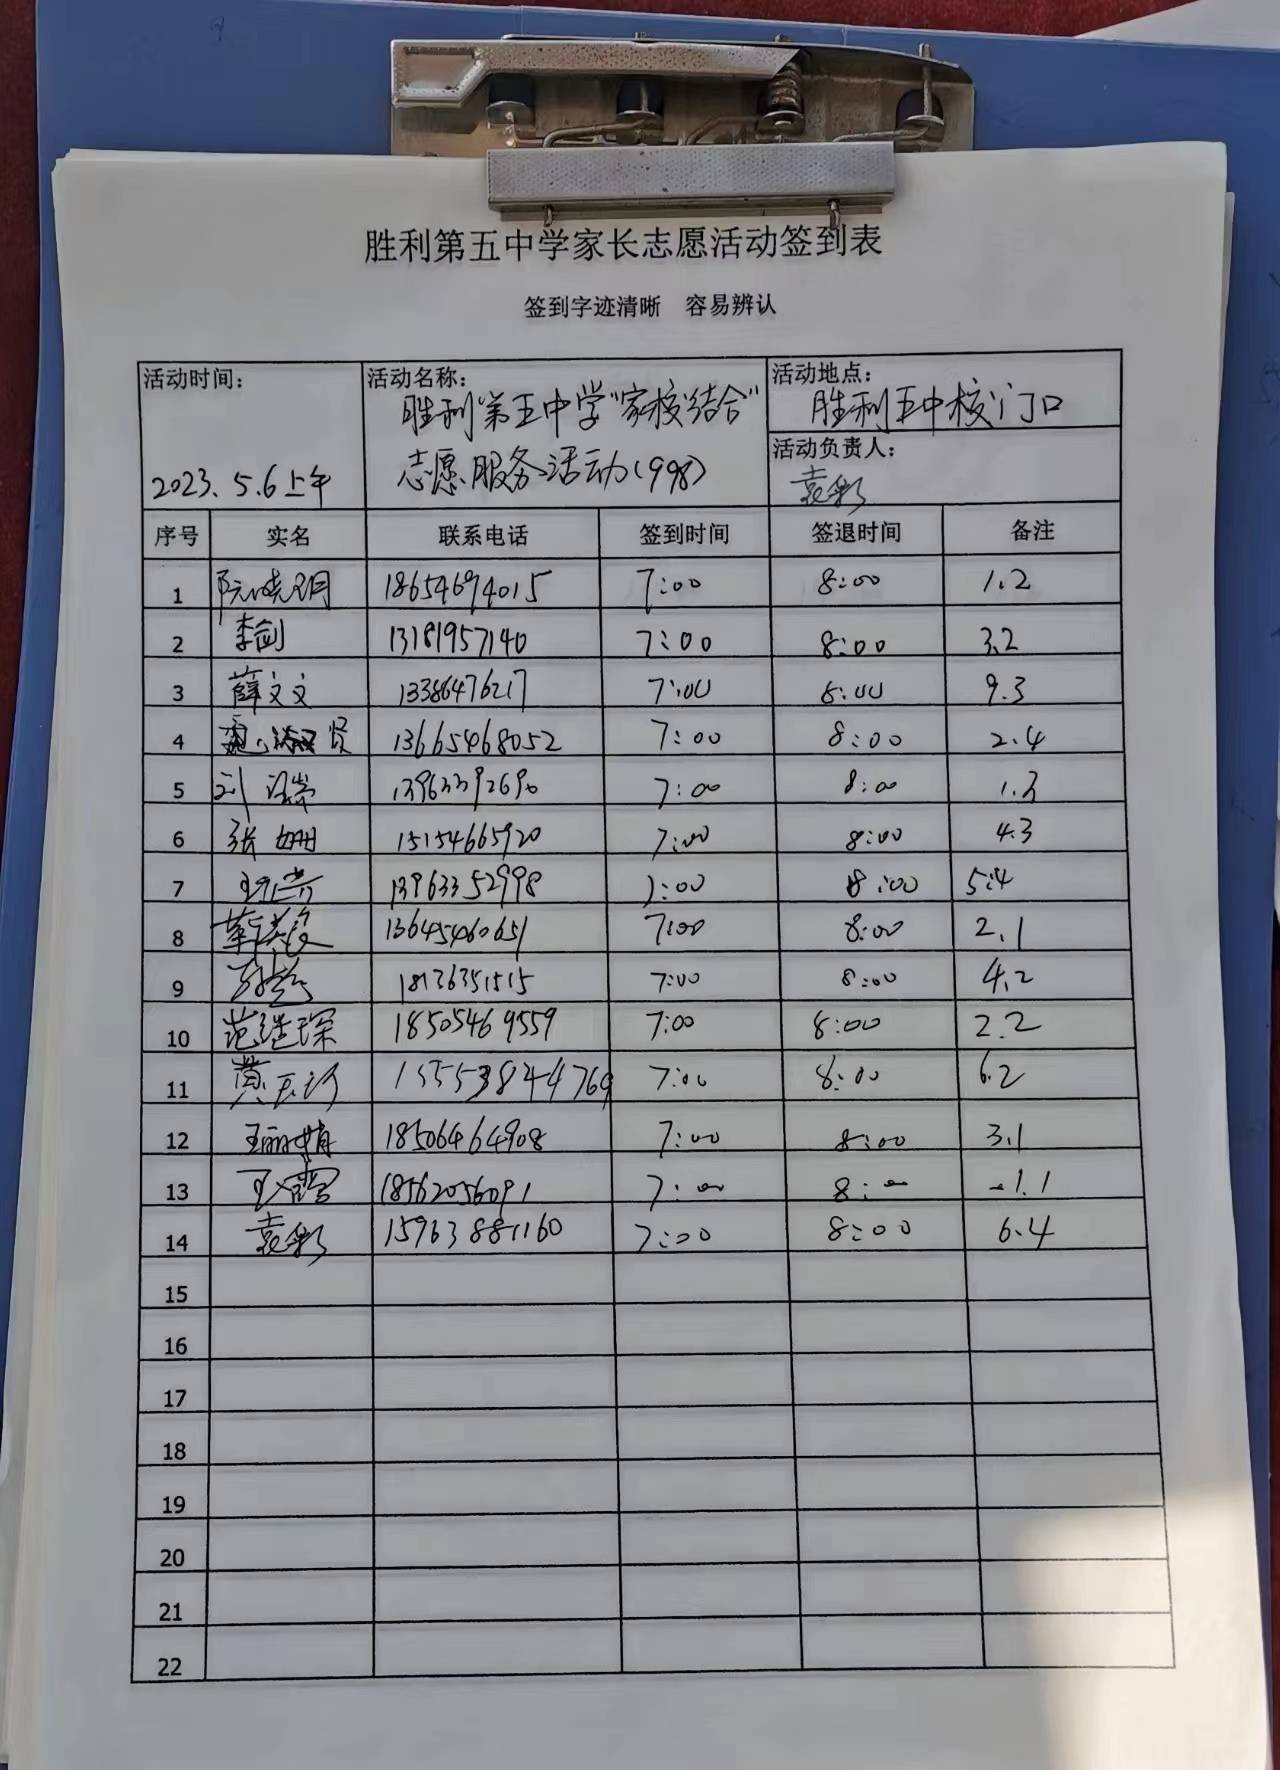 胜利第五中学家长志愿活动签到表
签到字迹清晰 容易辨认
活动时间: 2023.5.6上午
活动名称: 胜利第五中学"家校结合"
志愿服务活动(998)
活动地点: 胜利五中校门口
活动负责人: 袁彩
序号 实名 联系电话 签到时间 签退时间 备注
1 阮晓玥 18654694015 7:00 8:00 1.2
2 李剑 13181957140 7:00 8:00 3.2
3 薛文文 13386476217 7:00 8:00 9.3
4 贤 13665468052 7:00 8:00 2.4
5 刘 13963392690 7:00 8:00 1.3
6 张姗 15154665920 7:00 8:00 4.3
7 13963352998 7:00 8:00 5.4
8 13645460651 7:00 8:00 2.1
9 7:00 8:00 4.2
10 范琛 18505469559 7:00 8:00 2.2
11 黄玉 15553844769 7:00 8:00 6.2
12 王丽娟 18506464908 7:00 8:00 3.1
13 王露 18562056091 7:00 8:00 1.1
14 袁彩 15963881160 7:00 8:00 6.4
15
16
17
18
19
20
21
22